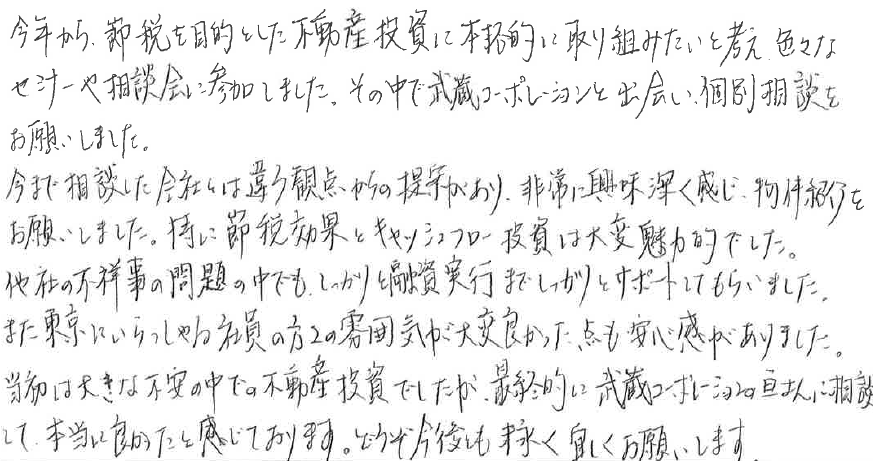 今年から、節税を目的とした不動産投資に本格的に取り組みたいと考え、色々な
セミナーや相談会に参加しました。その中で武蔵コーポレーションと出会い、個別相談を
お願いしました。
今まで相談した会社とは違う観点からの提案があり、非常に興味深く感じ、物件紹介を
お願いしました。特に節税効果とキャッシュフロー投資は大変魅力的でした。
他社の不祥事の問題の中でも、しっかりと融資実行までしっかりとサポートしてもらいました。
また東京にいらっしゃる社員の方々の雰囲気が大変良かった点も安心感がありました。
当初は大きな不安の中での不動産投資でしたが、最終的に武蔵コーポレーションの皆さんに相談
して、本当に良かったと感じております。どうぞ今後も末永く宜しくお願いします。